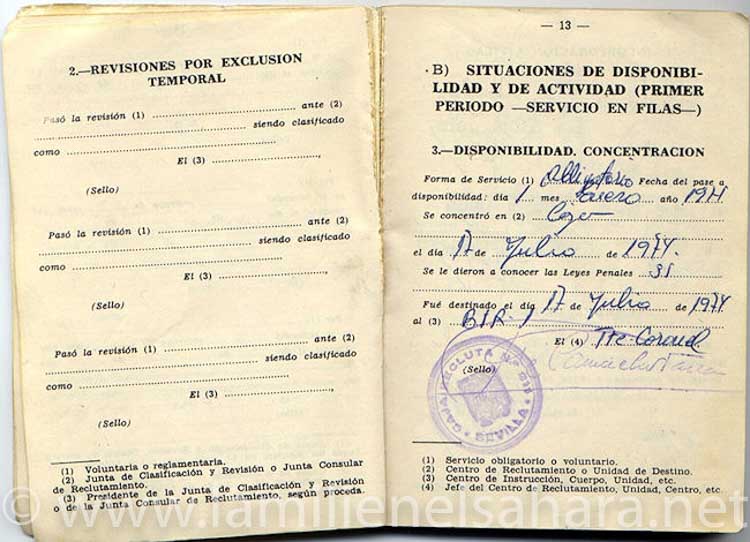 2.—REVISIONES POR EXCLUSION
TEMPORAL
Pasó la revisión (1) .............................. ante (2)
.............................................. siendo clasificado
como ..............................................
El (3) ..............................,
(Sello)
Pasó la revisión (1) .............................. ante (2)
.............................................. siendo clasificado
como ..............................................
El (3) ..............................,
(Sello)
Pasó la revisión (1) .............................. ante (2)
.............................................. siendo clasificado
como ..............................................
El (3) ..............................,
(Sello)
(1) Voluntaria o reglamentaria.
(2) Junta de Clasificación y Revisión o Junta Consular
de Reclutamiento.
(3) Presidente de la Junta de Clasificación y Revisión
o de la Junta Consular de Reclutamiento, según proceda.
— 13 —
B) SITUACIONES DE DISPONIBI-
LIDAD Y DE ACTIVIDAD (PRIMER
PERIODO —SERVICIO EN FILAS—)
3.—DISPONIBILIDAD. CONCENTRACION
Forma de Servicio (1) Obligatorio Fecha del pase a
disponibilidad: día 1 mes Enero año 1974
Se concentró en (2) Caja
el día 17 de Julio de 1974.
Se le dieron a conocer las Leyes Penales si
Fué destinado el día 17 de Julio de 1974
al (3) B.I.R. 1
El (4) Tte. Coronel
(Sello)
CAJA RECLUTA Nº
SEVILLA
(1) Servicio obligatorio o voluntario.
(2) Centro de Reclutamiento o Unidad de Destino.
(3) Centro de Instrucción, Cuerpo, Unidad, etc.
(4) Jefe del Centro de Reclutamiento, Unidad, Centro, etc.
© www.lamilienelsahara.net